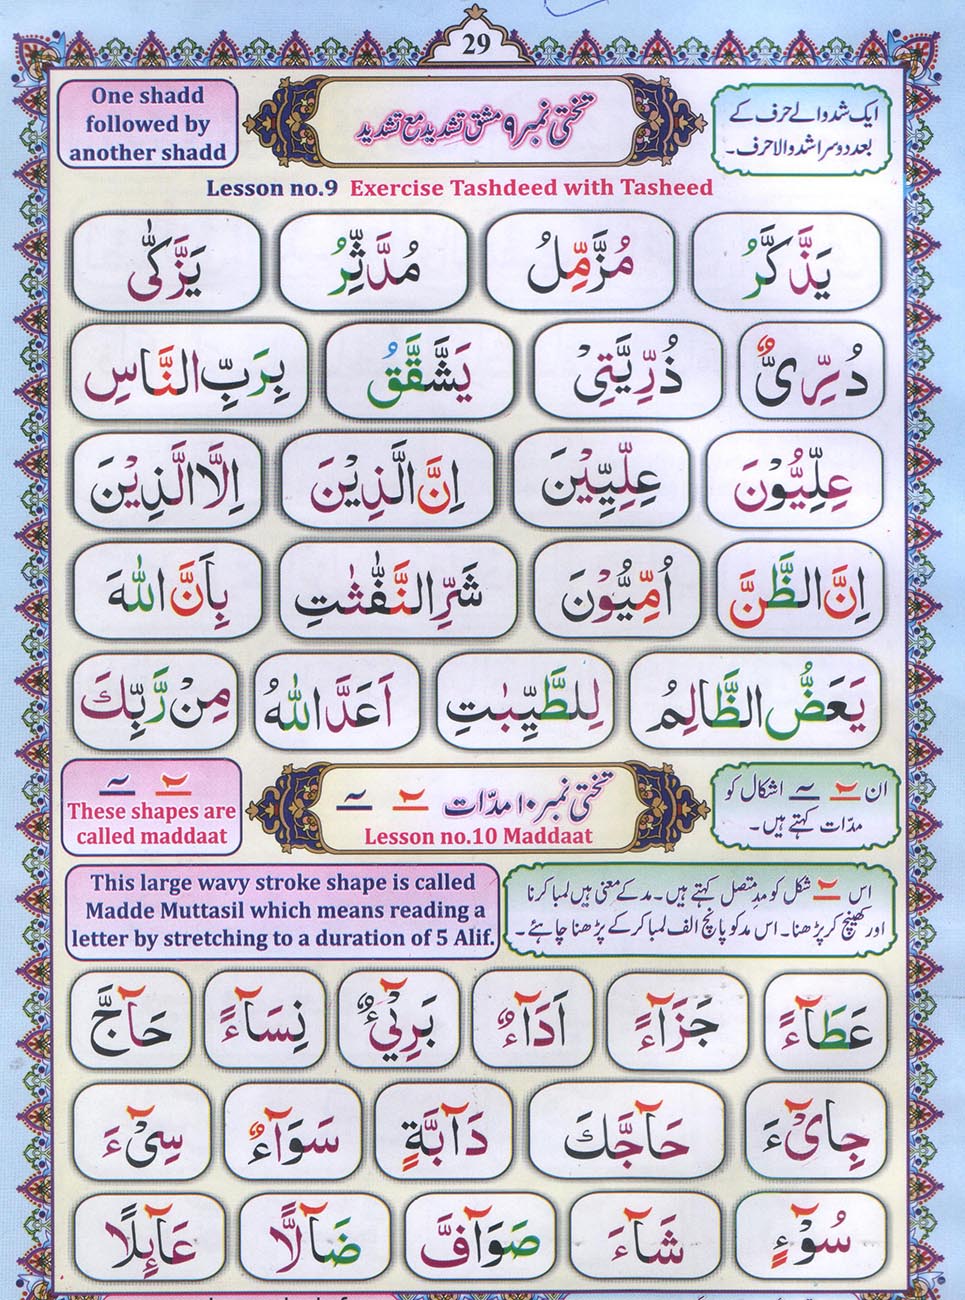 29
One shadd
followed by
another shadd
تختی نمبر ۹ مشق تشدید مع تشدید
ایک شد والے حرف کے
بعد دوسرا شد والا حرف۔
Lesson no.9 Exercise Tashdeed with Tasheed
يَذَّكَّرُ مُزَّمِّلُ مُدَّثِّرُ يَزَّكّٰى
دُرِّىٌّ ذُرِّيَّتِىْ يَشَّقَّقُ بِرَبِّ النَّاسِ
عِلِّيُّوْنَ عِلِّيِّيْنَ اِنَّ الَّذِيْنَ اِلَّا الَّذِيْنَ
اِنَّ الظَّنَّ اُمِّيُّوْنَ شَرِّ النَّفّٰثٰتِ بِاَنَّ اللّٰهَ
يَعَضُّ الظَّالِمُ لِلطَّيِّبٰتِ اَعَدَّ اللّٰهُ مِنْ رَّبِّكَ
These shapes are
called maddaat
تختی نمبر ۱۰ مدّات
Lesson no.10 Maddaat
ان اشکال کو
مدّات کہتے ہیں۔
This large wavy stroke shape is called
Madde Muttasil which means reading a
letter by stretching to a duration of 5 Alif.
اس شکل کو مدِ متصل کہتے ہیں۔ مد کے معنی ہیں لمبا کرنا
اور کھینچ کر پڑھنا۔ اس مد کو پانچ الف لمبا کر کے پڑھنا چاہئے۔
عَطَآءً جَزَآءً اَدَآءٌ بَرِیْٓءٌ نِسَآءً حَآجَّ
جِایْٓءَ حَآجَّكَ دَآبَّةٍ سَوَآءٌ سِیْٓءَ
سُوْٓءٍ شَآءَ صَوَآفَّ ضَآلًّا عَآىِٕلًا